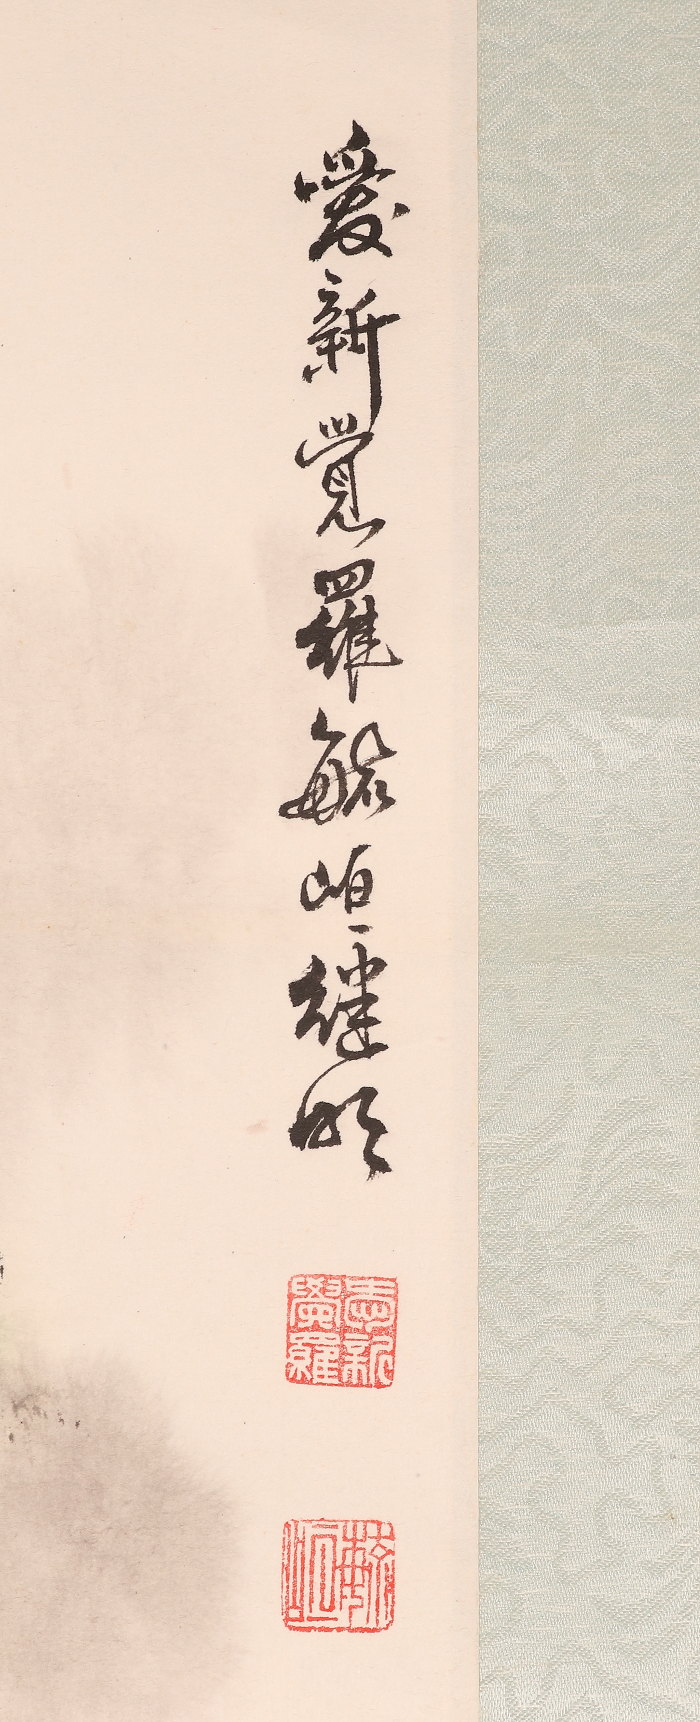 愛新覺羅毓峘繼明
愛新覺羅
毓峘